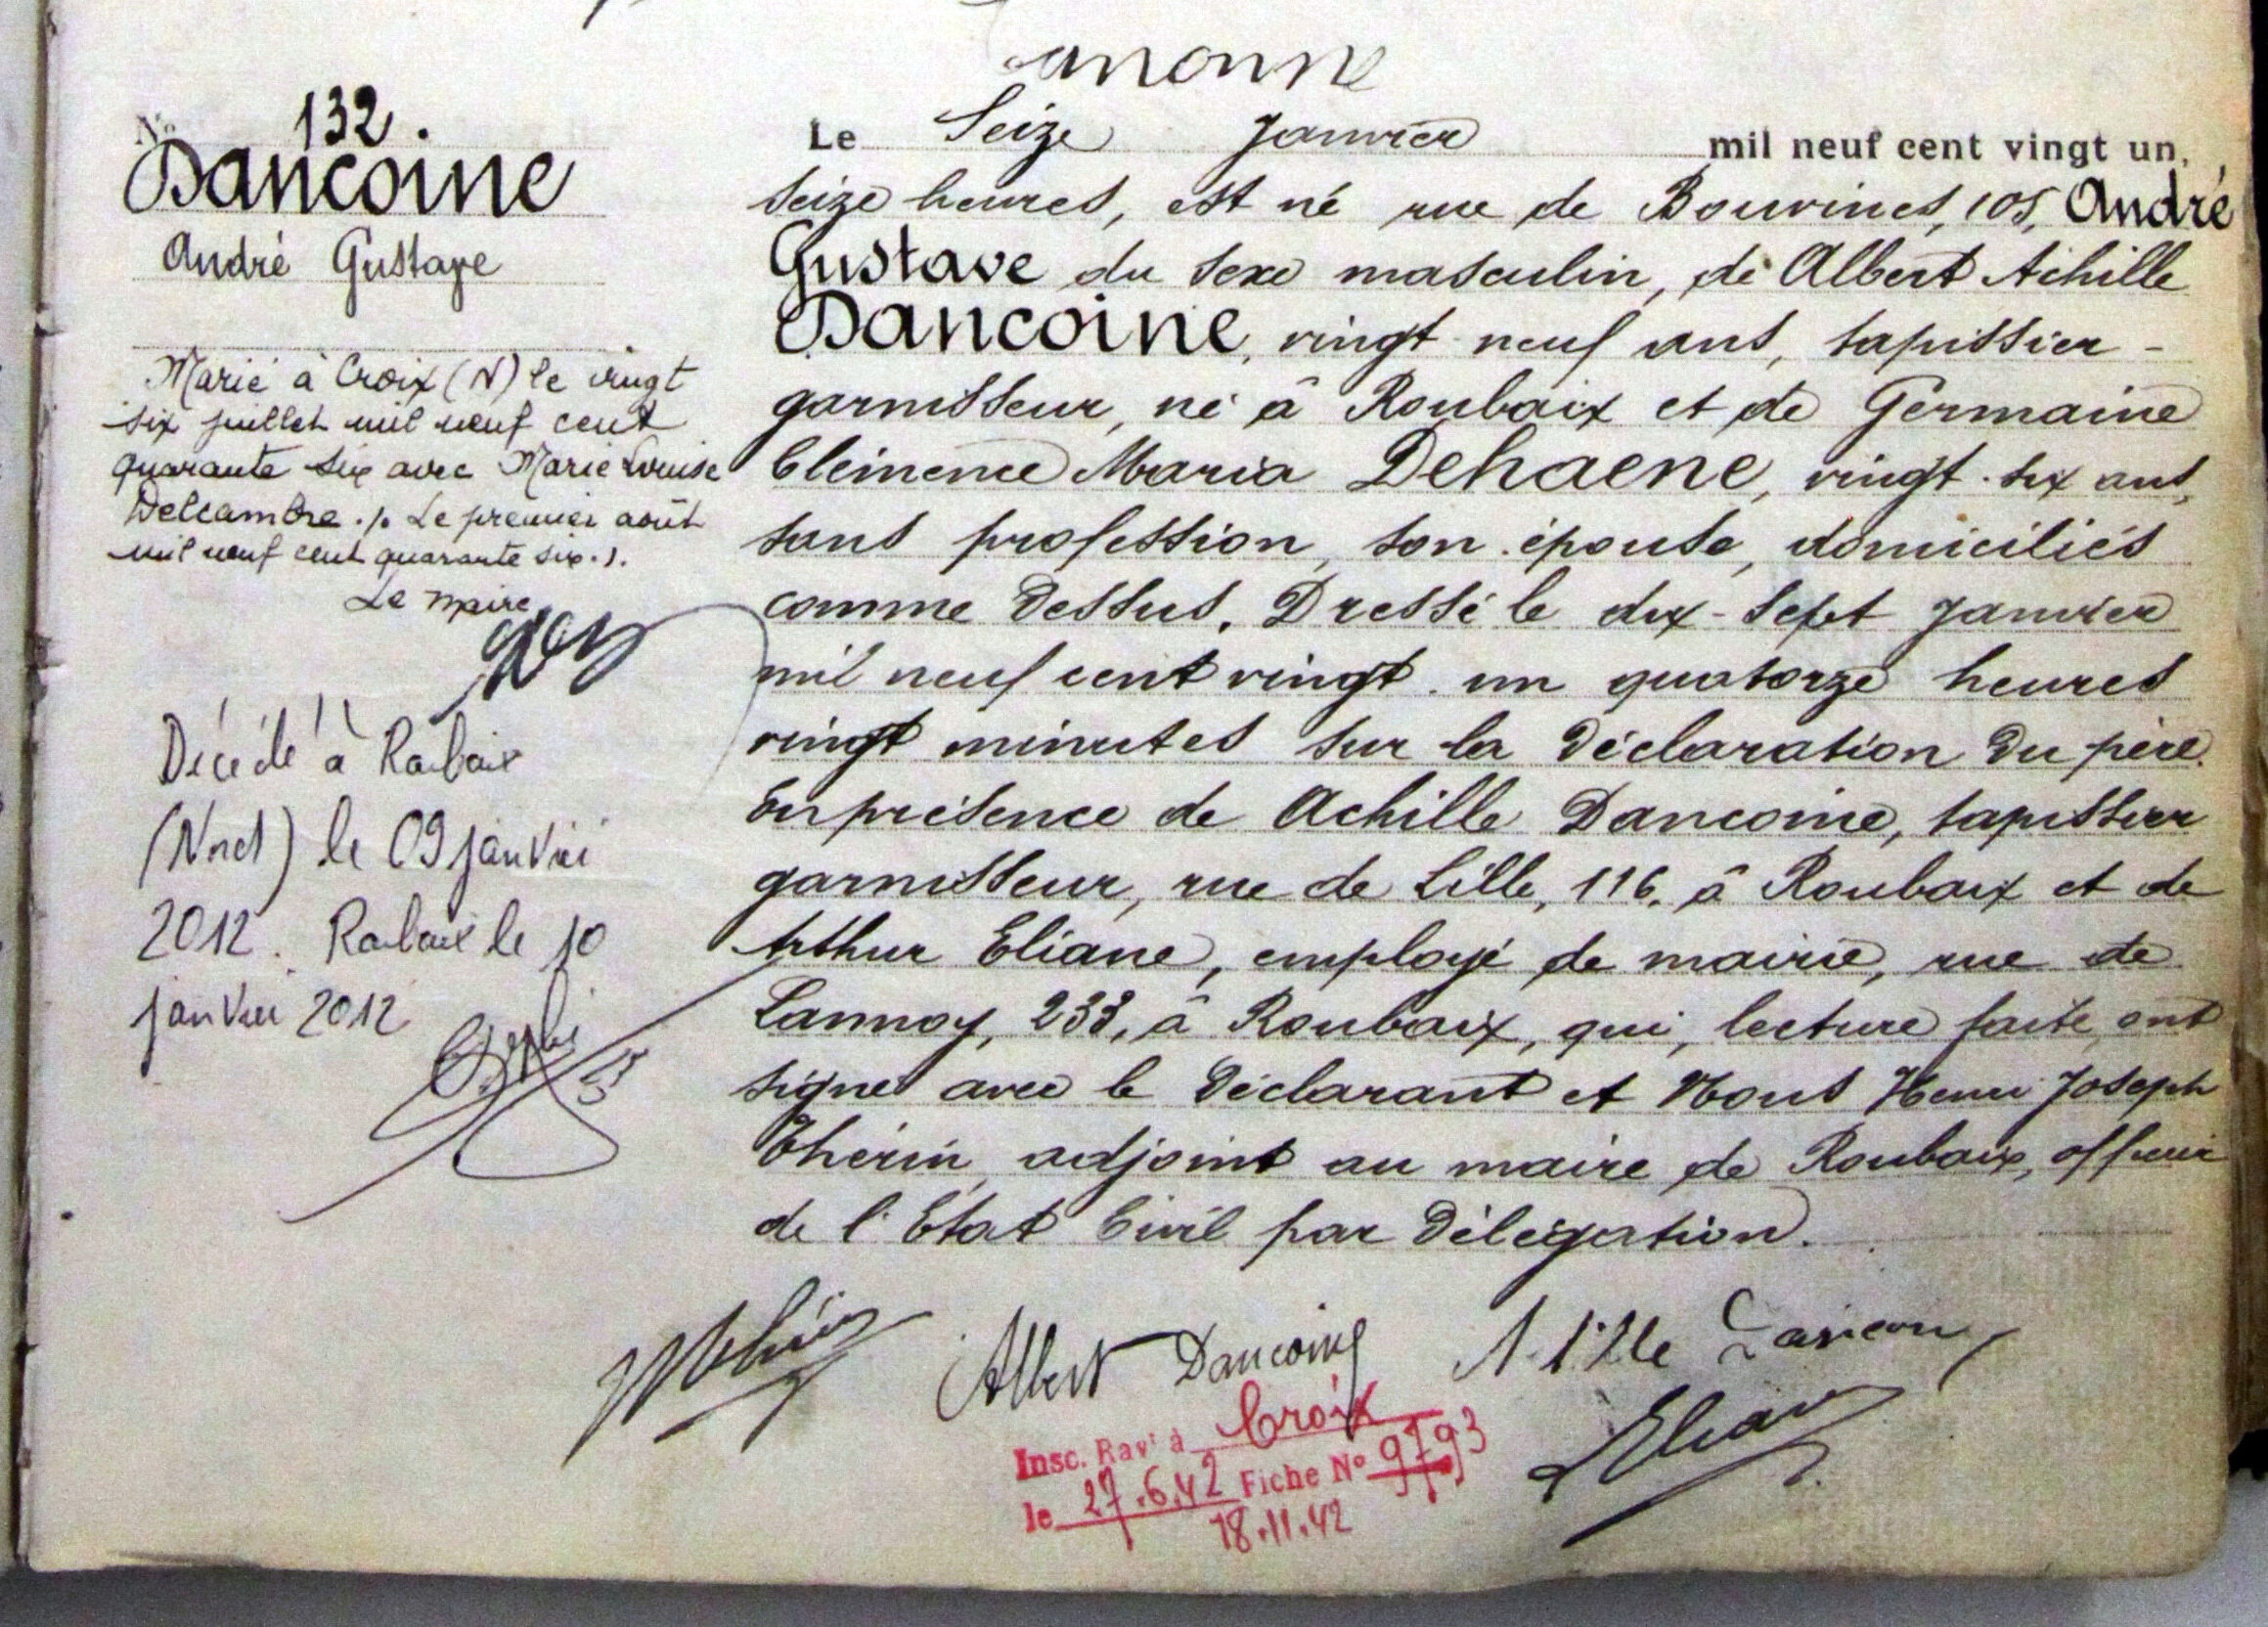 N° 132.
Dancoine
André Gustave
Marié à Croix (N) le vingt
six juillet mil neuf cent
quarante six avec Marie Louise
Delcambre ./. Le premier août
mil neuf cent quarante six ./.
Le Maire
Décédé à Roubaix
(Nord) le 09 janvier
2012. Roubaix le 10
janvier 2012
Le Seize Janvier mil neuf cent vingt un,
seize heures, est né rue de Bouvines, 105, André
Gustave du sexe masculin, de Albert Achille
Dancoine, vingt neuf ans, tapissier-
garnisseur, né à Roubaix et de Germaine
Clémence Maria Dehaene, vingt-six ans,
sans profession, son épouse, domiciliés
comme dessus. Dressé le dix-sept Janvier
mil neuf cent vingt-un quatorze heures
vingt minutes sur la déclaration du père.
En présence de Achille Dancoine, tapissier
garnisseur, rue de Lille, 116, à Roubaix et de
Arthur Eliane, employé de mairie, rue de
Lannoy, 233, à Roubaix, qui, lecture faite, ont
signé avec le déclarant et Nous Henri Joseph
Thérin, adjoint au maire de Roubaix, officier
de l'État Civil par délégation.
Albert Dancoine
Insc. Rav<sup>t</sup> à Croix
le 27.6.42 Fiche N° 9793
18.11.42